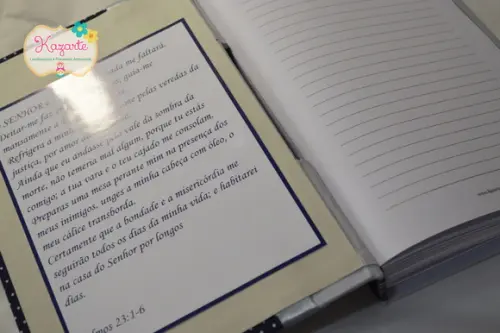 Kazarte
SENHOR
nada me faltará.
Deitar-me faz
guia-me
mansamente a
Refrigera a minh
me pelas veredas da
justiça, por amor
Ainda que eu andasse pelo vale da sombra da
morte, não temeria mal algum, porque tu estás
comigo; a tua vara e o teu cajado me consolam.
Preparas uma mesa perante mim na presença dos
meus inimigos, unges a minha cabeça com óleo, o
meu cálice transborda.
Certamente que a bondade e a misericórdia me
seguirão todos os dias da minha vida; e habitarei
na casa do Senhor por longos
dias.
lmos 23:1-6